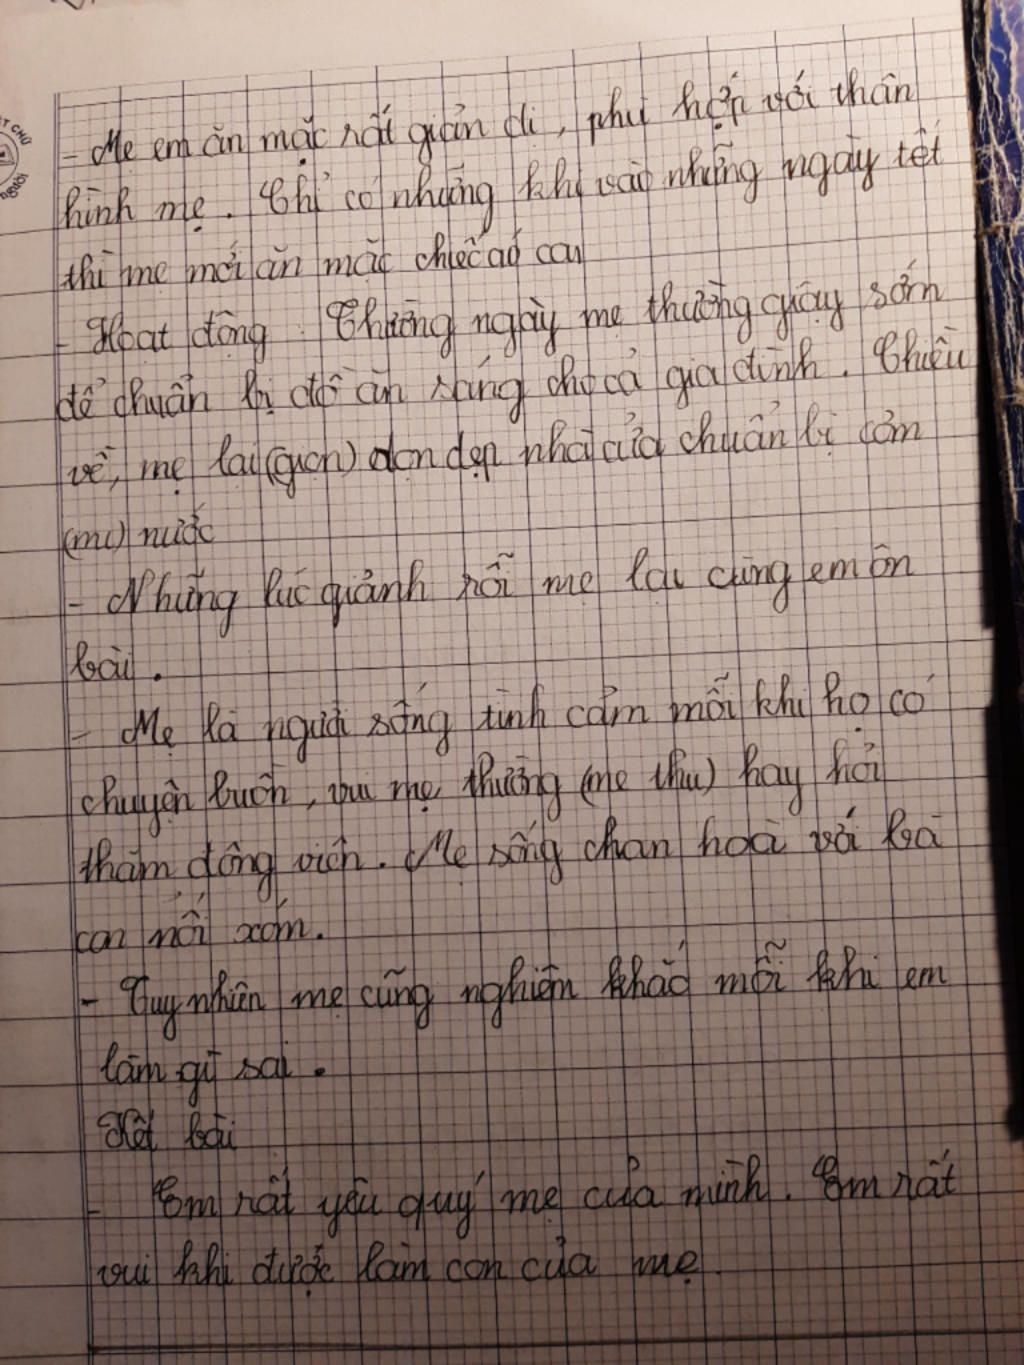 - Mẹ em ăn mặc rất giản dị, phù hợp với thân
hình mẹ. Chỉ có những khi vào những ngày tết
thì mẹ mới ăn mặc chiếc áo
- Hoạt động. Thường ngày mẹ thường dậy sớm
để chuẩn bị đồ ăn sáng cho cả gia đình. Chiều
về, mẹ lại (gion) dọn dẹp nhà cửa chuẩn bị cơm
(mc) nước
- Những lúc giảnh rỗi mẹ lại cùng em ôn
bài.
- Mẹ là người sống tình cảm mỗi khi họ có
chuyện buồn, vui mẹ thường (mẹ thu) hay hỏi
thăm động viên. Mẹ sống chan hoà với bà
con nối xóm.
- Tuy nhiên mẹ cũng nghiêm khắc mỗi khi em
làm gì sai.
Kết bài
- Em rất yêu quý mẹ của mình. Em rất
vui khi được làm con của mẹ.